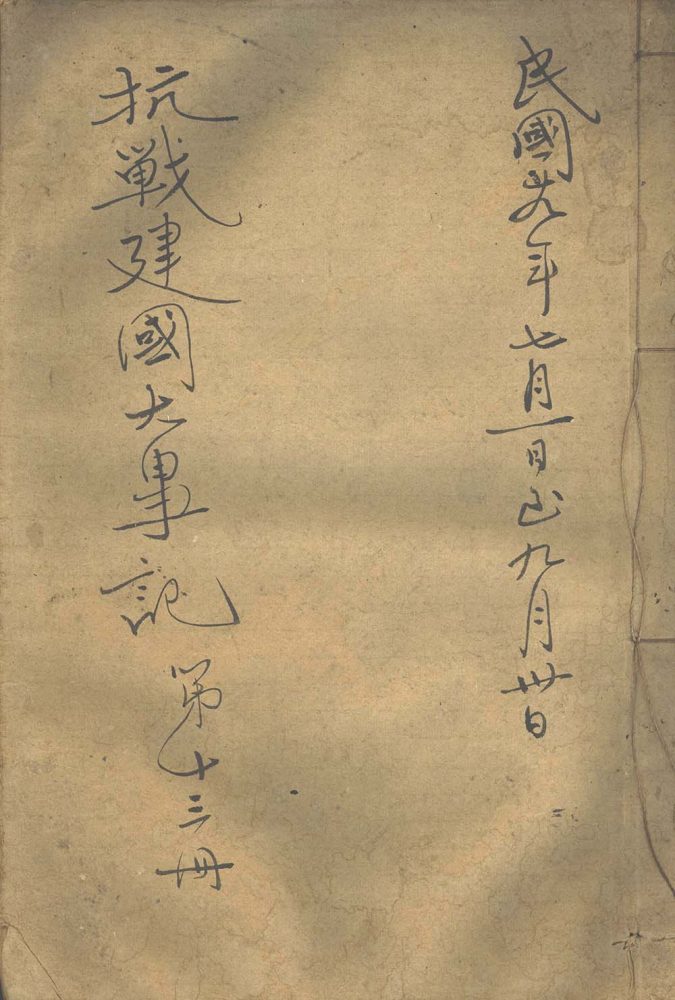 民國廿九年七月一日至九月卅日
抗戰建國大事記
第十三冊